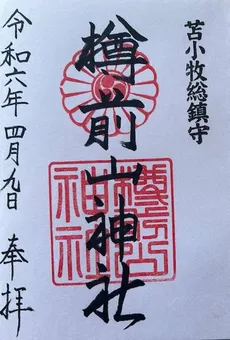 苫小牧総鎮守
樽前山神社
樽前山神社
奉拝
令和六年四月九日